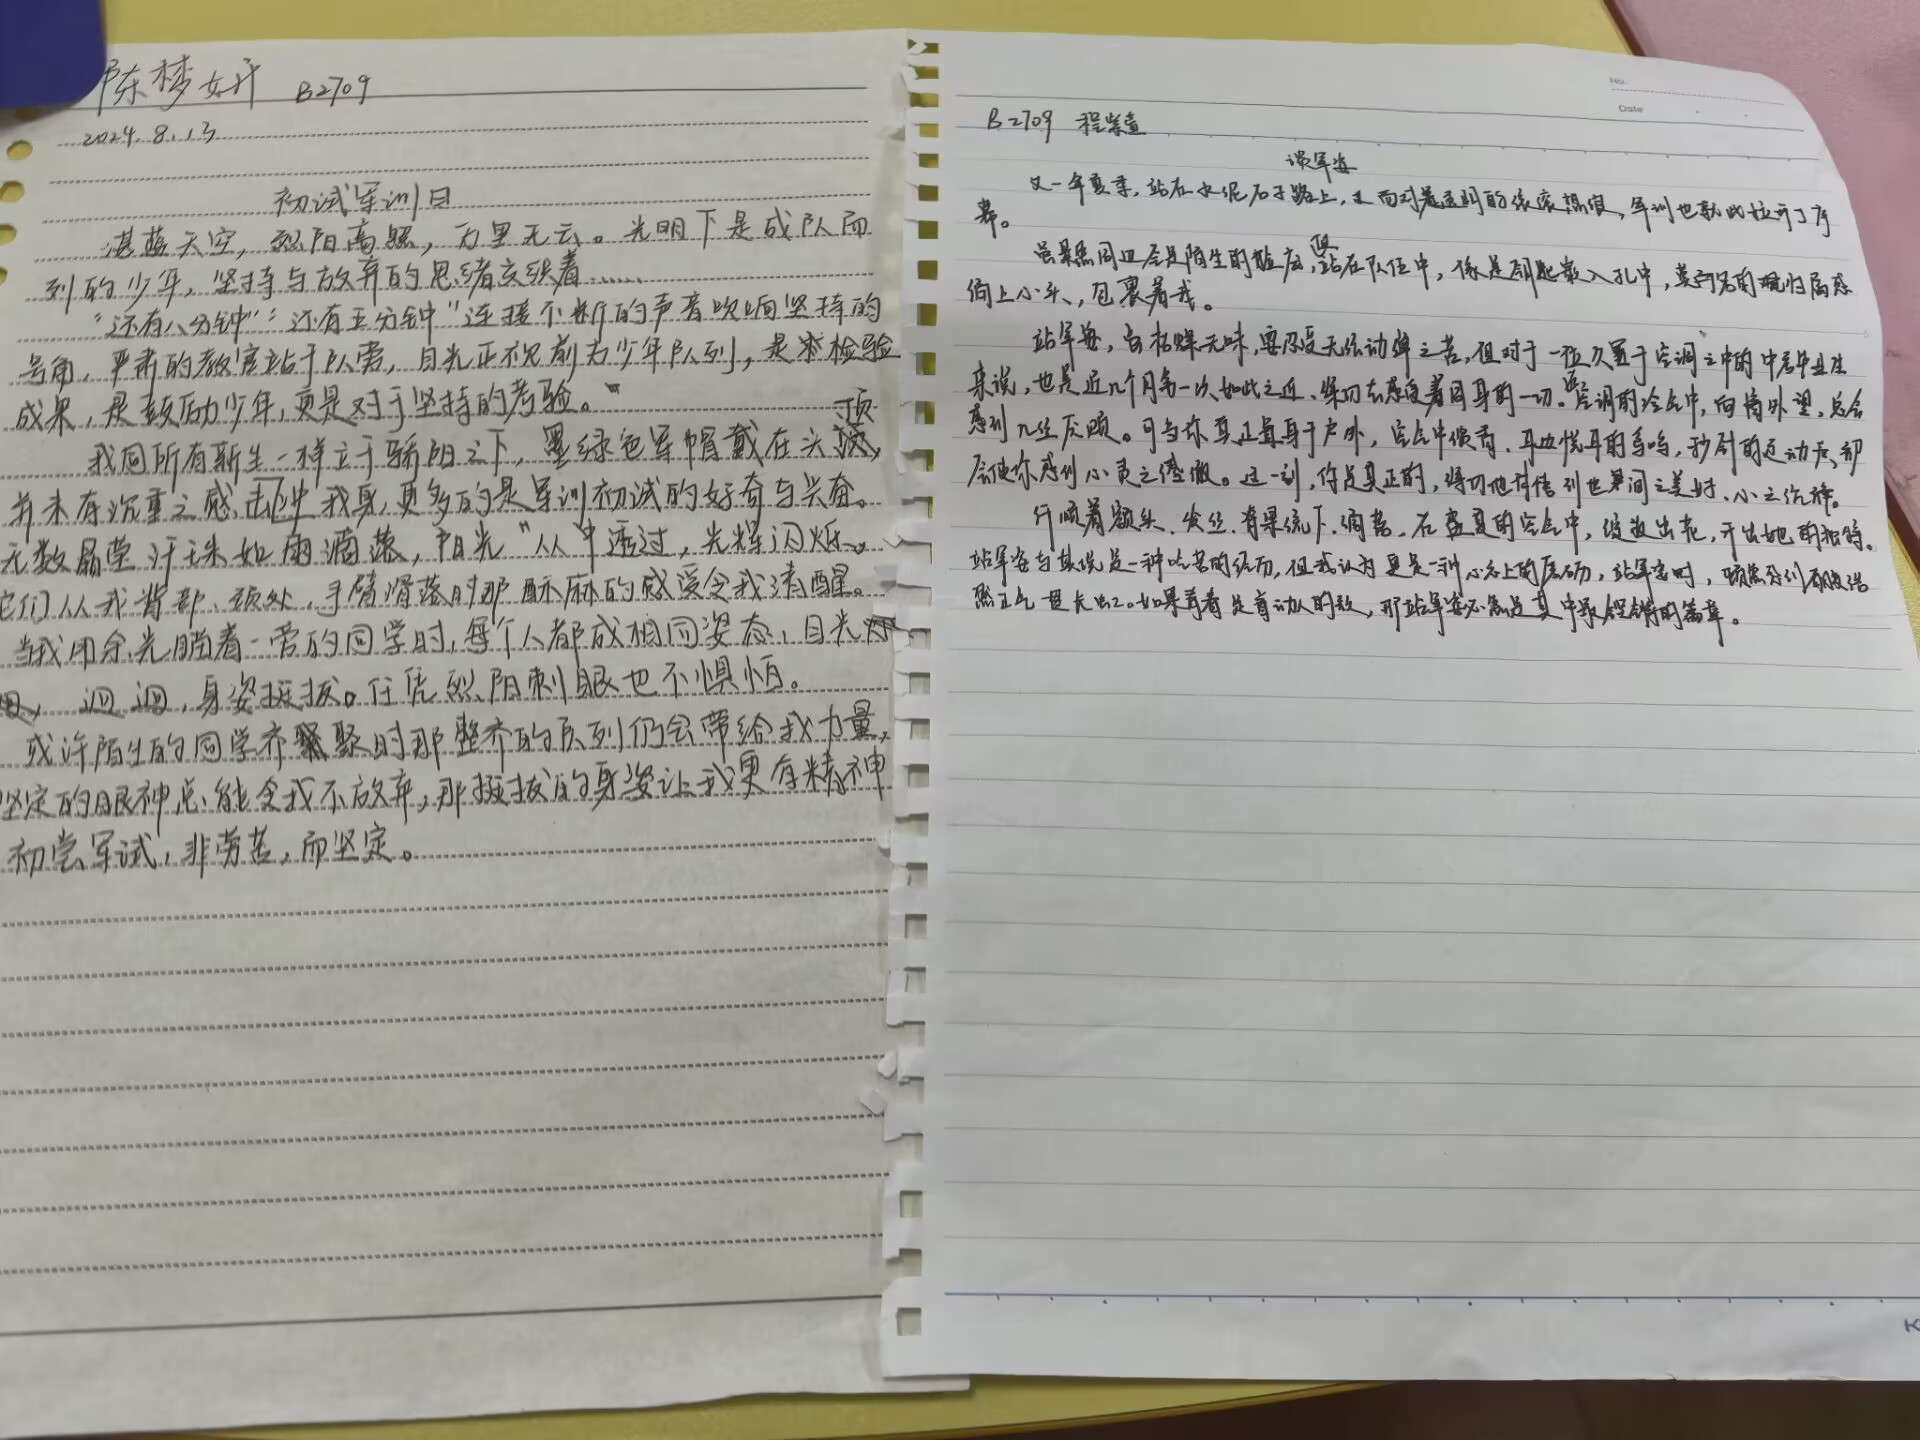 陈梦妍 B2709
2024.8.13
初试军训日
湛蓝天空，烈阳高照，万里无云。光明下是成队而
列的少年，坚持与放弃的思绪交织着……
“还有八分钟”“还有五分钟”连接不断的声音吹响坚持的
号角，严肃的教官站于队旁，目光正视前方少年队列，是来检验
成果，是鼓励少年，更是对于坚持的考验。
我同所有新生一样立于骄阳之下，墨绿色军帽戴在头顶，
并未有沉重之感，击中我身，更多的是军训初试的好奇与兴奋。
无数晶莹汗珠如雨滴落，阳光“从”中透过，光辉闪烁。
它们从我背部、颈处、手臂滑落时那酥麻的感受令我清醒。
当我用余光瞄着一旁的同学时，每个人都成相同姿态，目光
迥迥，身姿挺拔。任凭烈阳刺眼也不惧怕。
或许陌生的同学齐聚时那整齐的队列仍会带给我力量，
坚定的眼神总能令我不放弃，那挺拔的身姿让我更有精神
初尝军试，非劳苦，而坚定。
No.
Date
B2709 程紫
谈军姿
又一年夏季，站在水泥石子路上，面对着的滚滚热浪，军训也就此拉开了序
幕。
虽是周边尽是陌生的脸庞，站在队伍中，像是钥匙嵌入孔中，莫名的归属感
涌上心头，包裹着我。
站军姿，尚枯燥无味，要忍受无法动弹之苦，但对于一位久置于空调之中的中考毕业生
来说，也是近几个月第一次如此之近、深切去感受着周身的一切。空调的冷气中，向窗外望，总会
感到几丝厌烦。可当你真正置身于户外，空气中，耳边悦耳的鸟鸣，
会使你感到心灵之。这一刻，你是真正的，
汗顺着额头、发丝、背脊流下，在盛夏的空气中，绽放出花，开出她的独特。
站军姿与其说是一种吃苦的经历，但我认为更是一种心态上的磨砺，站军姿时，顿然感到有股浩
然正气。如果青春是首动人的歌，那站军姿必然是其中最的篇章。